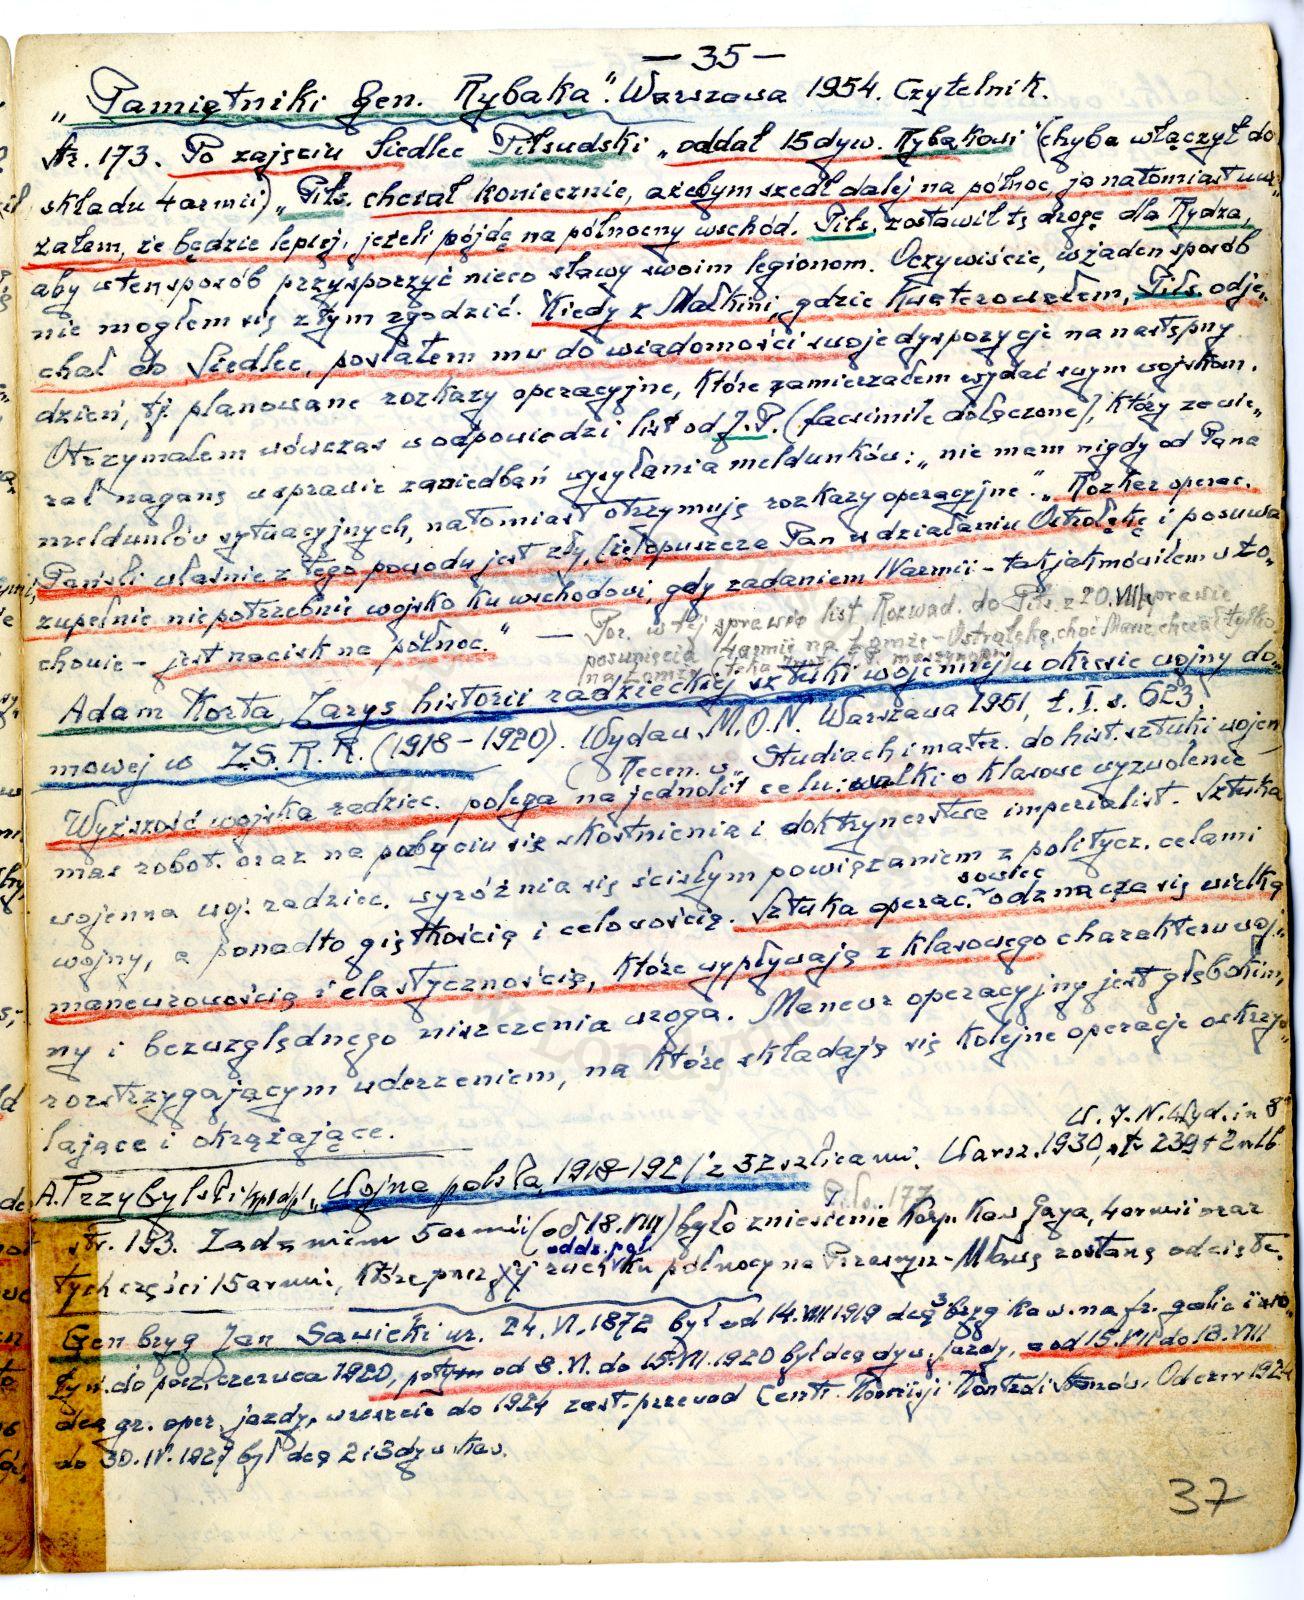 — 35 —
„Pamiętniki Gen. Rybaka". Warszawa 1954. Czytelnik.
Str. 173. Po zajęciu Siedlec Piłsudski „oddał 15 dyw. Rybakowi" (chyba włączył do
składu 4 armii) „Piłs. chciał koniecznie, ażebym szedł dalej na północ, ja natomiast uwa„
żałem, że będzie lepiej, jeżeli pójdę na północny wschód. Piłs. zostawił tę drogę dla Rydza,
aby w ten sposób przysporzyć nieco sławy swoim legionom. Oczywiście, w żaden sposób
nie mogłem się z tym zgodzić. Kiedy z Małkini, gdzie kwaterowałem, Piłs. odje„
chał do Siedlec, posłałem mu do wiadomości swoje dyspozycje na następny
dzień, tj. planowane rozkazy operacyjne, które zamierzałem wydać swym wojskom.
Otrzymałem wówczas w odpowiedzi list od J.P. (facsimile dołączone), który zawie„
rał naganę w sprawie zaniedbań wysyłania meldunków: „nie mam nigdy od Pana
meldunków sytuacyjnych, natomiast otrzymuję rozkazy operacyjne." „Rozkaz operac.
Pański właśnie z tego powodu jest zły, że opuszcza Pan w działaniu Ostrołękę i posuwa
zupełnie niepotrzebnie wojsko ku wschodowi, gdy zadaniem IV armii - tak jak mówiłem w Ło„
chowie - jest nacisk na północ." — Por. w tej sprawie list Rozwad. do Piłs. z 20.VIII w sprawie
posunięcia 4 armii na Łomżę - Ostrołękę, choć Marsz. chciał tylko
na Łomżę
Adam Korta, Zarys historii radzieckiej sztuki wojennej w okresie wojny do„
mowej w Z.S.R.R. (1918-1920). Wydaw. M.O.N. Warszawa 1951, t. I. s. 623.
(Recen. w „Studiach i mater. do hist. sztuki wojen.)
Wyższość wojska radziec. polega na jednolit. celu: walki o klasowe wyzwolenie
mas robot. oraz na pozbyciu się skostnienia i doktrynerstwa imperialist. Sztuka
wojenna woj. radziec. wyróżnia się ścisłym powiązaniem z politycz. celami
wojny, a ponadto giętkością i celowością. Sztuka operac. sowiec. odznacza się wielką
manewrowością i elastycznością, które wypływają z klasowego charakteru woj„
ny i bezwzględnego niszczenia wroga. Manewr operacyjny jest głębokim,
rozstrzygającym uderzeniem, na które składają się kolejne operacje oskrzy„
lające i okrążające.
W.I.N. Wyd. in 8°
A. Przybylski „Wojna polska, 1918-1921" z 37 szkicami. Warsz. 1930, str. 239 + 2 nlb
P.S. 177
Str. 193. Zadaniem 5 armii (od 18.VIII) było zniesienie Korp. Kaw. Gaya, 4 armii oraz
tych części 15 armii, które przez ruch oddz. pol. ku północy na Przasnysz-Mławę zostaną odcięte.
Gen. bryg. Jan Sawicki ur. 24.VI.1872 był od 14.VIII 1919 dcą 3 bryg. kaw. na fr. galic. i wo„
łyń. do pocz. czerwca 1920, potym od 8.VI. do 15.VII.1920 był dcą dyw. jazdy, a od 15.VII do 18.VIII
dcą gr. oper. jazdy, wreszcie do 1924 zast. przewod. Centr. Komisji Kontroli Stanów. Od czerw. 1924
do 30.IV.1927 był dcą 2 i 3 dyw. kaw.
37